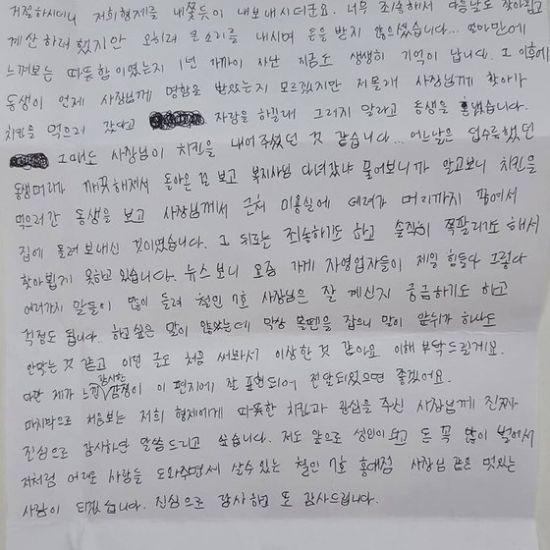 거절하시더니 저희형제를 내쫓듯이 내보내시더군요. 너무 죄송해서 다음날도 찾아뵙고
계산하려 했지만 오히려 큰소리를 내시며 돈을 받지 않으셨습니다... 얼마만에
느껴보는 따뜻함이였는지 1년 가까이 지난 지금도 생생히 기억이 납니다. 그 이후에
동생이 언제 사장님께 명함을 받았는지 모르겠지만 저몰래 사장님께 찾아가
치킨을 먹으러 갔다고 자랑을 하길래 그러지 말라고 동생을 혼냈습니다.
그때도 사장님이 치킨을 내어주셨던 것 같습니다... 어느날은 덥수룩했던
동생머리가 깨끗해져서 돌아온 걸 보고 복지사님 다녀갔냐 물어보니까 알고보니 치킨을
먹으러간 동생을 보고 사장님께서 근처 미용실에 데려가 머리까지 깎여서
집에 돌려보내신 것이였습니다. 그 뒤로는 죄송하기도 하고 솔직히 쪽팔리기도 해서
찾아뵙지 못하고 있습니다. 뉴스보니 요즘 가게 자영업자들이 제일 힘들다 그렇다
여러가지 말들이 많이 들려 철인 7호 사장님은 잘 계신지 궁금하기도 하고
걱정도 됩니다. 하고싶은 말이 많았는데 막상 볼펜을 잡으니 말이 앞뒤가 하나도
안맞는 것 같고 이런 글도 처음 써봐서 이상한 것 같아요. 이해 부탁드릴게요.
다만 제가 느낀 감사한 감정이 이 편지에 잘 표현되어 전달되었으면 좋겠어요.
마지막으로 처음보는 저희 형제에게 따뜻한 치킨과 관심을 주신 사장님께 진짜
진심으로 감사하단 말씀드리고 싶습니다. 저도 앞으로 성인이 되고 돈 꼭 많이 벌어서
저처럼 어려운 사람들 도와주면서 살 수 있는 철인 7호 홍대점 사장님 같은 멋있는
사람이 되겠습니다. 진심으로 감사하고 또 감사드립니다.